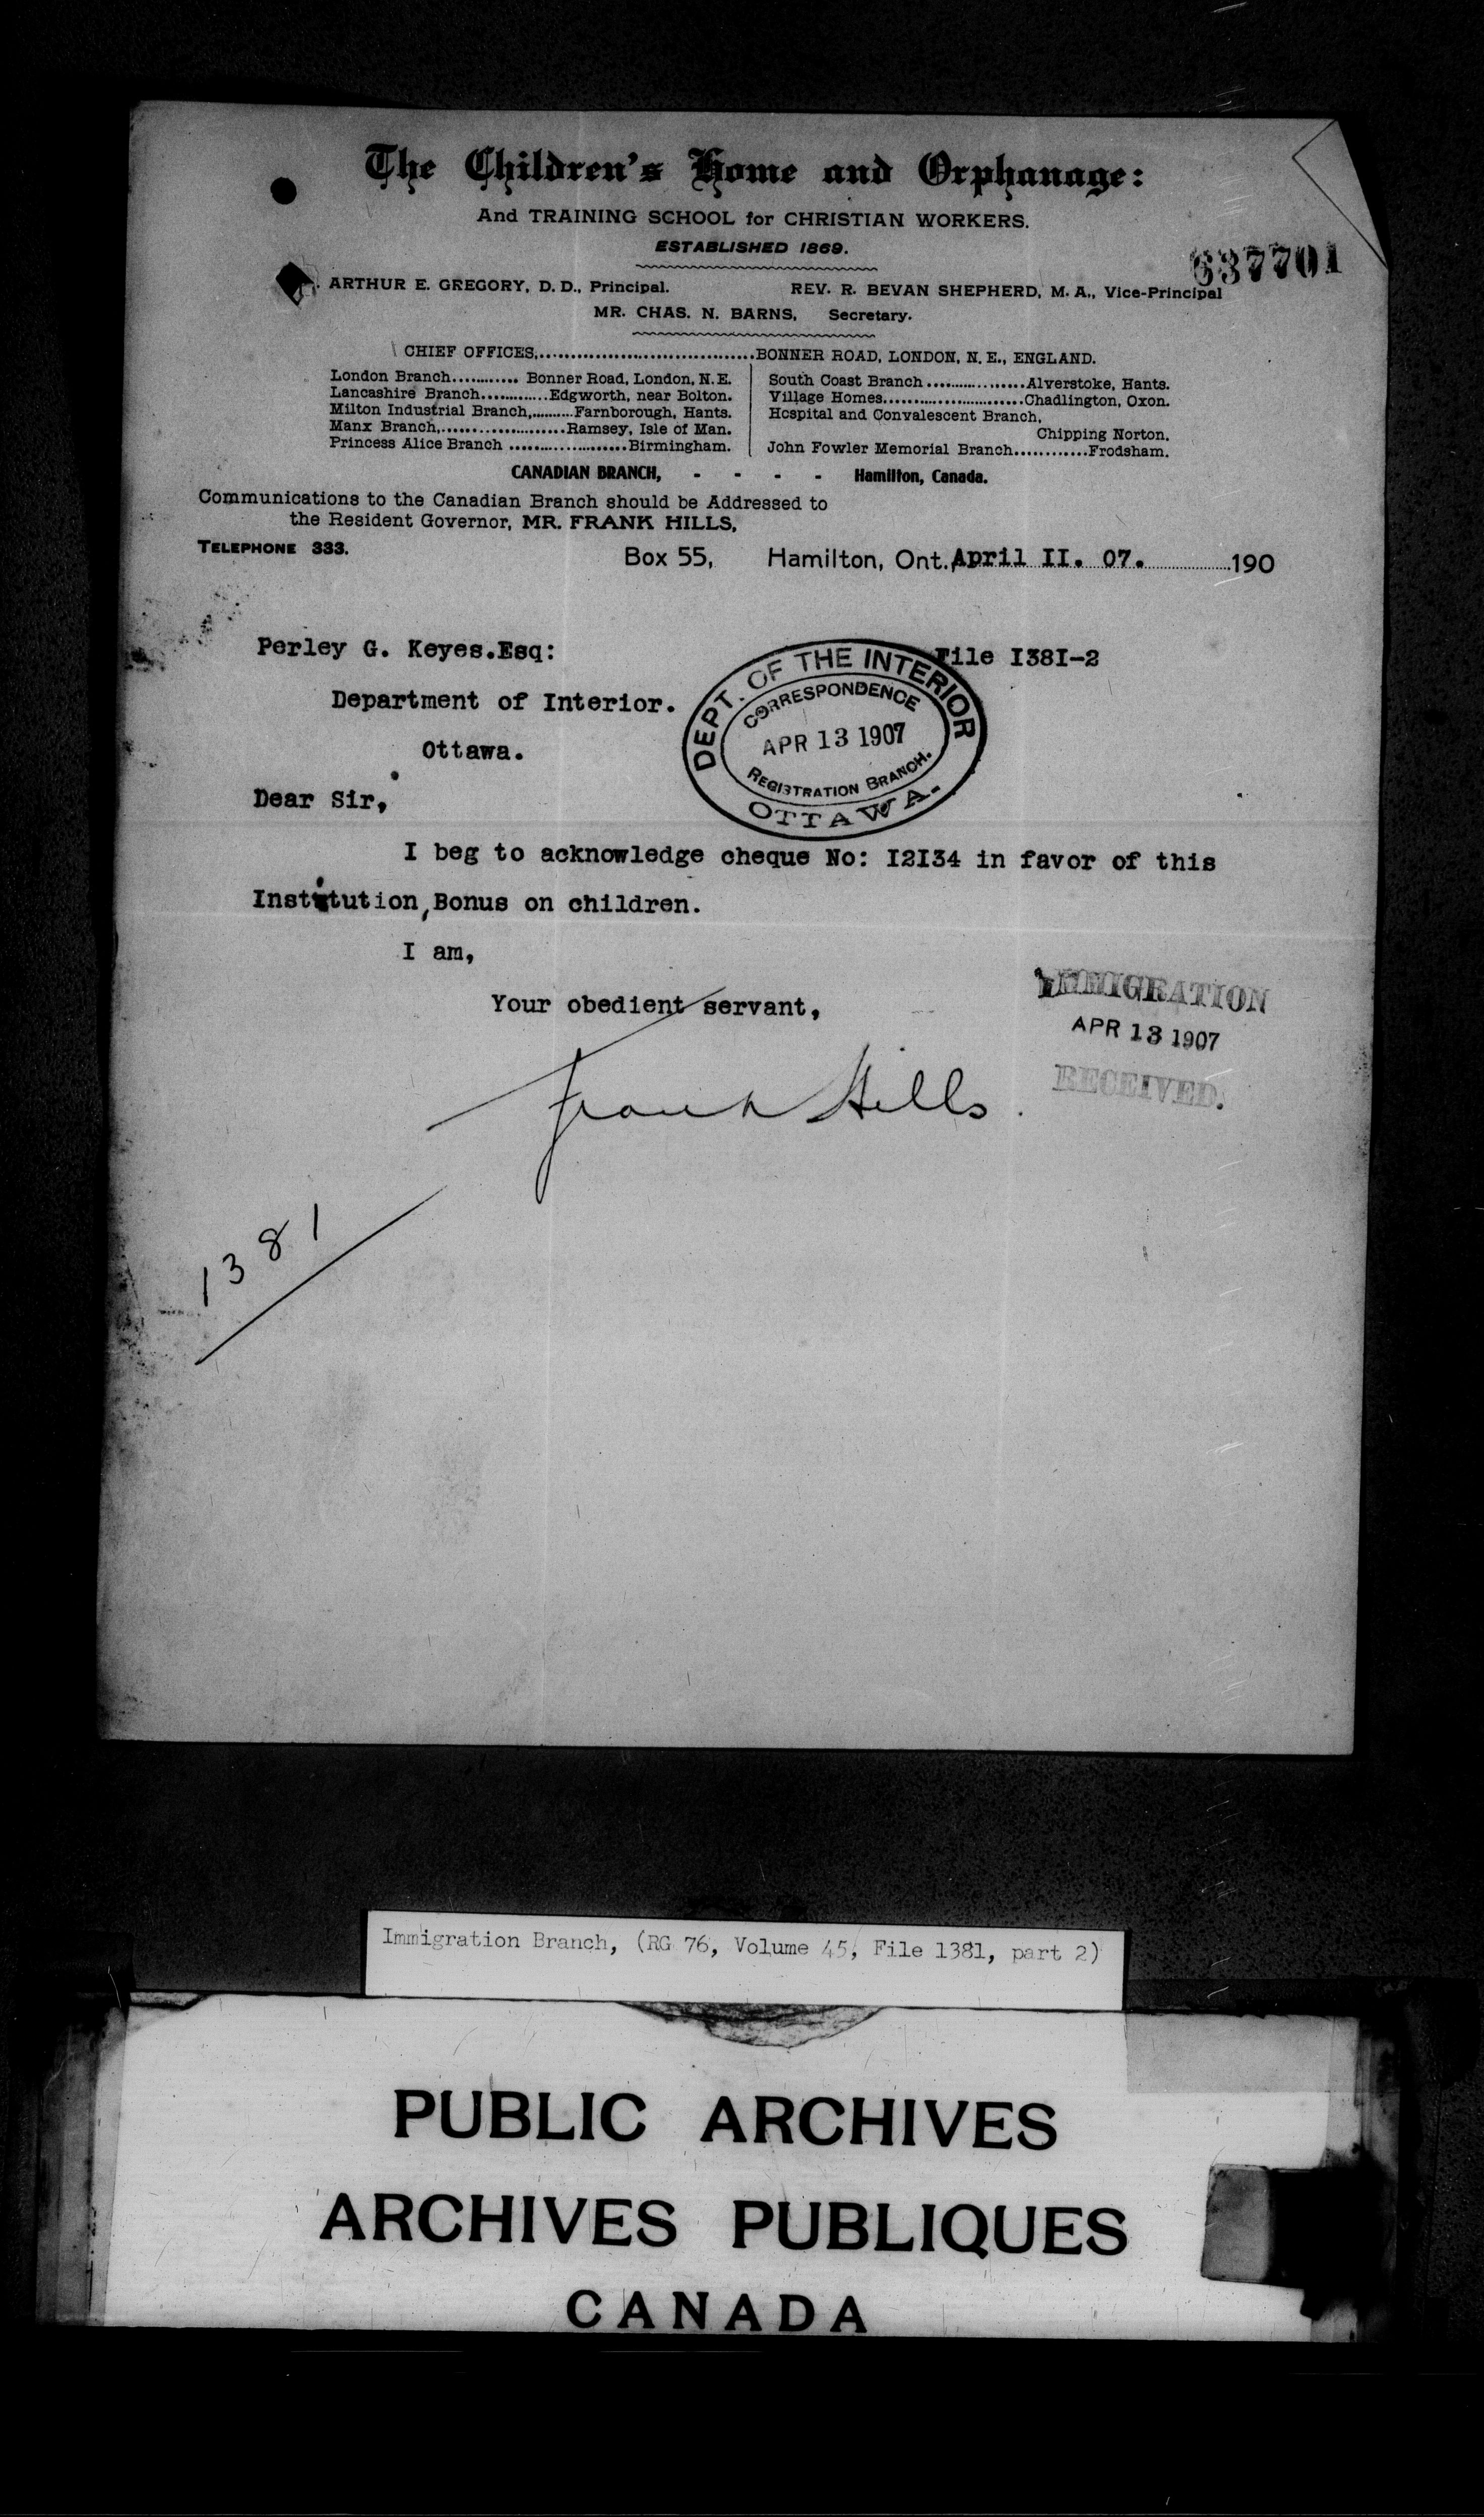 The Children's Home and Orphanage:
And TRAINING SCHOOL for CHRISTIAN WORKERS.
ESTABLISHED 1869.
637701
ARTHUR E. GREGORY, D. D., Principal. REV. R. BEVAN SHEPHERD, M. A., Vice-Principal
MR. CHAS. N. BARNS, Secretary.
CHIEF OFFICES, BONNER ROAD, LONDON, N. E., ENGLAND.
London Branch Bonner Road, London, N.E.
Lancashire Branch Edgworth, near Bolton.
Milton Industrial Branch, Farnborough, Hants.
Manx Branch, Ramsey, Isle of Man.
Princess Alice Branch Birmingham.
South Coast Branch Alverstoke, Hants.
Village Homes Chadlington, Oxon.
Hospital and Convalescent Branch,
Chipping Norton.
John Fowler Memorial Branch Frodsham.
CANADIAN BRANCH, - - - - Hamilton, Canada.
Communications to the Canadian Branch should be Addressed to
the Resident Governor, MR. FRANK HILLS,
TELEPHONE 333.
Box 55, Hamilton, Ont. April II. 07. 190
Perley G. Keyes.Esq:
File I38I-2
Department of Interior.
Ottawa.
DEPT. OF THE INTERIOR
CORRESPONDENCE
APR 13 1907
REGISTRATION BRANCH.
OTTAWA.
Dear Sir,
I beg to acknowledge cheque No: I2I34 in favor of this
Institution, Bonus on children.
I am,
Your obedient servant,
Frank Hills.
IMMIGRATION
APR 13 1907
RECEIVED.
1381
Immigration Branch, (RG 76, Volume 45, File 1381, part 2)
PUBLIC ARCHIVES
ARCHIVES PUBLIQUES
CANADA